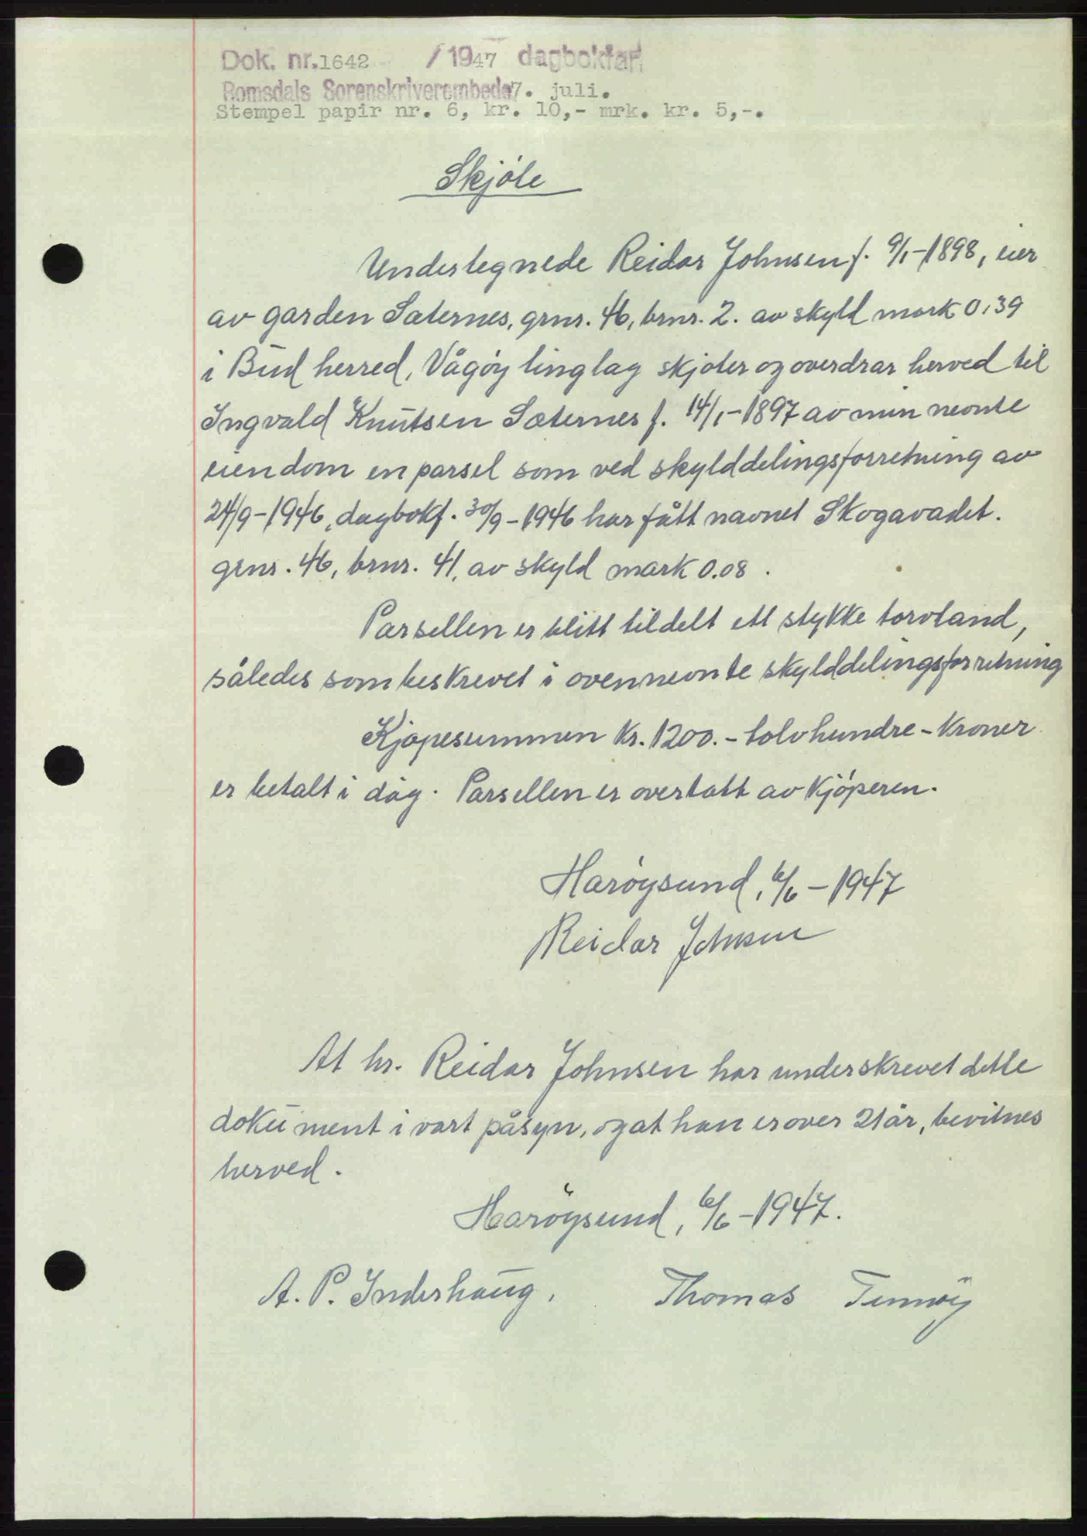 Dok. nr. 1642 / 1947 dagbokført
Romsdals Sorenskriverembede 7. juli.
Stempel papir nr. 6, kr. 10,- mrk. kr. 5,-.
Skjöte
Undertegnede Reidar Johnsen f. 9/1-1898, eier
av garden Sæternes, grnr. 46, brnr. 2. av skyld mark 0,39
i Bud herred, Vågøy tinglag skjöter og overdrar herved til
Ingvald Knutsen Sæternes f. 14/1-1897 av min nevnte
eiendom en parsel som ved skylddelingsforretning av
24/9-1946, dagbokf. 30/9-1946 har fått navnet Skogavadet.
grnr. 46, brnr. 41, av skyld mark 0.08.
Parsellen er blitt tildelt ett stykke torvland,
således som beskrevet i ovennevnte skylddelingsforretning
Kjöpesummen kr. 1200.- tolvhundre - kroner
er betalt i dag. Parsellen er overtatt av kjöperen.
Haröysund, 6/6-1947
Reidar Johnsen
At hr. Reidar Johnsen har underskrevet dette
dokument i vart påsyn, og at han er over 21 år, bevitnes
herved.
Haröysund, 6/6-1947.
A. P. Inderhaug. Thomas Ternöy